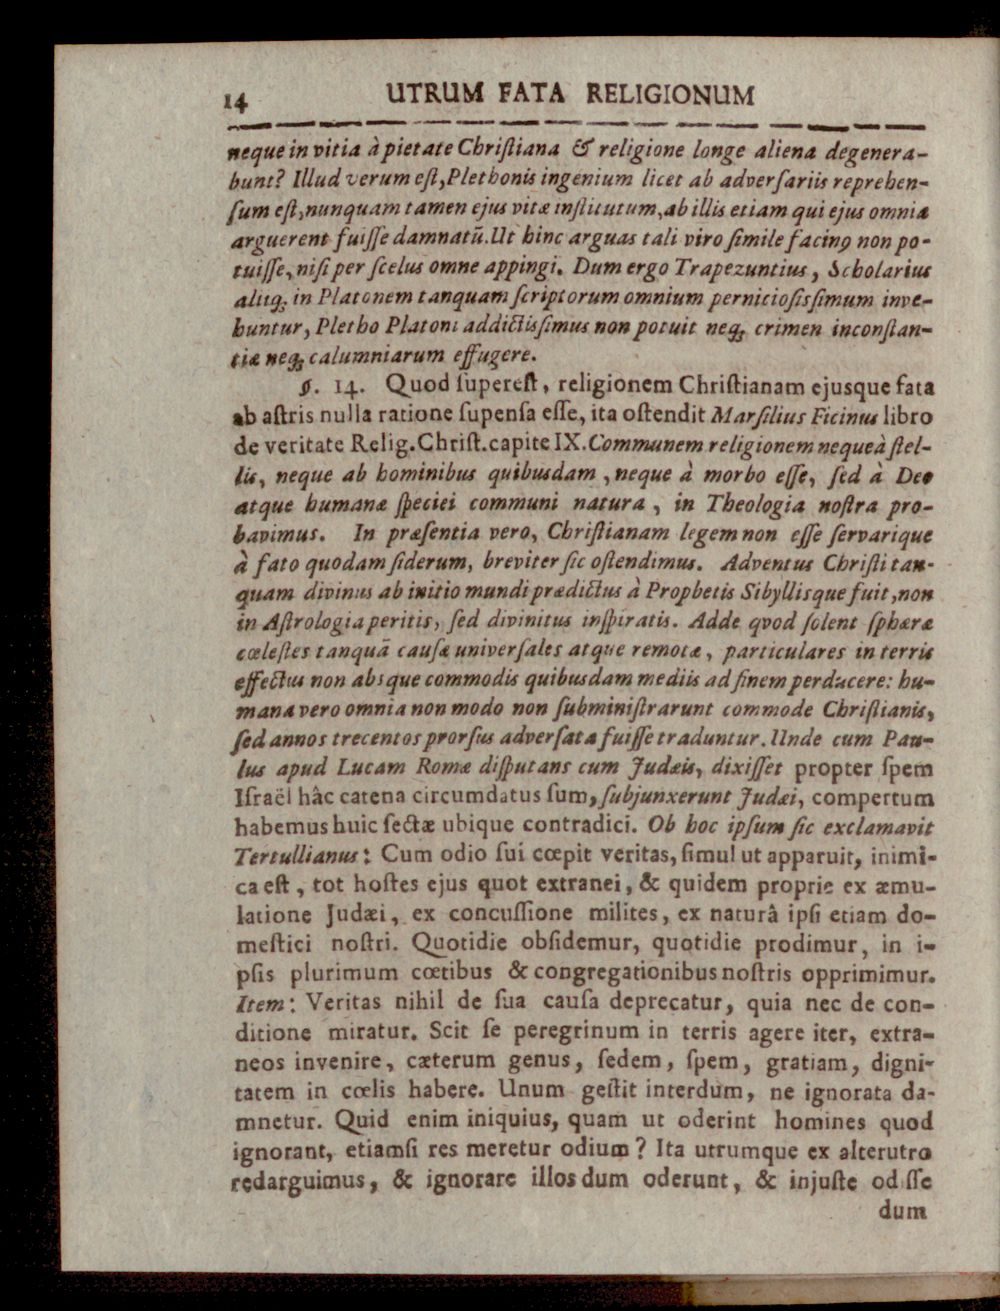 14 UTRUM FATA RELIGIONUM
neque in vitia à pietate Chriſtiana & religione longe aliena degenera-
bunt? Illud verum eſt, Plethonis ingenium licet ab adverſariis reprehen-
ſum eſt, nunquam tamen ejus vitæ inſtitutum, ab illis etiam qui ejus omnia
arguerent fuiſſe damnatũ. Ut hinc arguas tali viro ſimile facinꝰ non po-
tuiſſe, niſi per ſcelus omne appingi. Dum ergo Trapezuntius, Scholarius
aliiq; in Platonem tanquam ſcriptorum omnium pernicioſisſimum inve-
huntur, Pletho Platoni addictisſimus non potuit neq; crimen inconſtan-
tiæ neq; calumniarum effugere.
§. 14. Quod ſupereſt, religionem Chriſtianam ejusque fata
ab aſtris nulla ratione ſupenſa eſſe, ita oſtendit Marſilius Ficinus libro
de veritate Relig. Chriſt. capite IX. Communem religionem neque à ſtel-
lis, neque ab hominibus quibusdam, neque à morbo eſſe, ſed à Deo
atque humanæ ſpeciei communi natura, in Theologia noſtra pro-
bavimus. In præſentia vero, Chriſtianam legem non eſſe ſervarique
à fato quodam ſiderum, breviter ſic oſtendimus. Adventus Chriſti tan-
quam divinus ab initio mundi prædictus à Prophetis Sibyllisque fuit, non
in Aſtrologia peritis, ſed divinitus inſpiratis. Adde qvod ſolent ſphæræ
cœleſtes tanquã cauſæ univerſales atque remotæ, particulares in terris
effectus non absque commodis quibusdam mediis ad finem perducere: hu-
mana vero omnia non modo non ſubminiſtrarunt commode Chriſtianis,
ſed annos trecentos prorſus adverſata fuiſſe traduntur. Unde cum Pau-
lus apud Lucam Romæ diſputans cum Judæis, dixiſſet propter ſpem
Iſraël hâc catena circumdatus ſum, ſubjunxerunt Judæi, compertum
habemus huic ſectæ ubique contradici. Ob hoc ipſum ſic exclamavit
Tertullianus: Cum odio ſui cœpit veritas, ſimul ut apparuit, inimi-
ca eſt, tot hoſtes ejus quot extranei, & quidem proprie ex æmu-
latione Judæi, ex concuſſione milites, ex naturâ ipſi etiam do-
meſtici noſtri. Quotidie obſidemur, quotidie prodimur, in i-
pſis plurimum cœtibus & congregationibus noſtris opprimimur.
Item: Veritas nihil de ſua cauſa deprecatur, quia nec de con-
ditione miratur. Scit ſe peregrinum in terris agere iter, extra-
neos invenire, cæterum genus, ſedem, ſpem, gratiam, digni-
tatem in cœlis habere. Unum geſtit interdum, ne ignorata da-
mnetur. Quid enim iniquius, quam ut oderint homines quod
ignorant, etiamſi res meretur odium? Ita utrumque ex alterutro
redarguimus, & ignorare illos dum oderunt, & injuſte odiſſe
dum